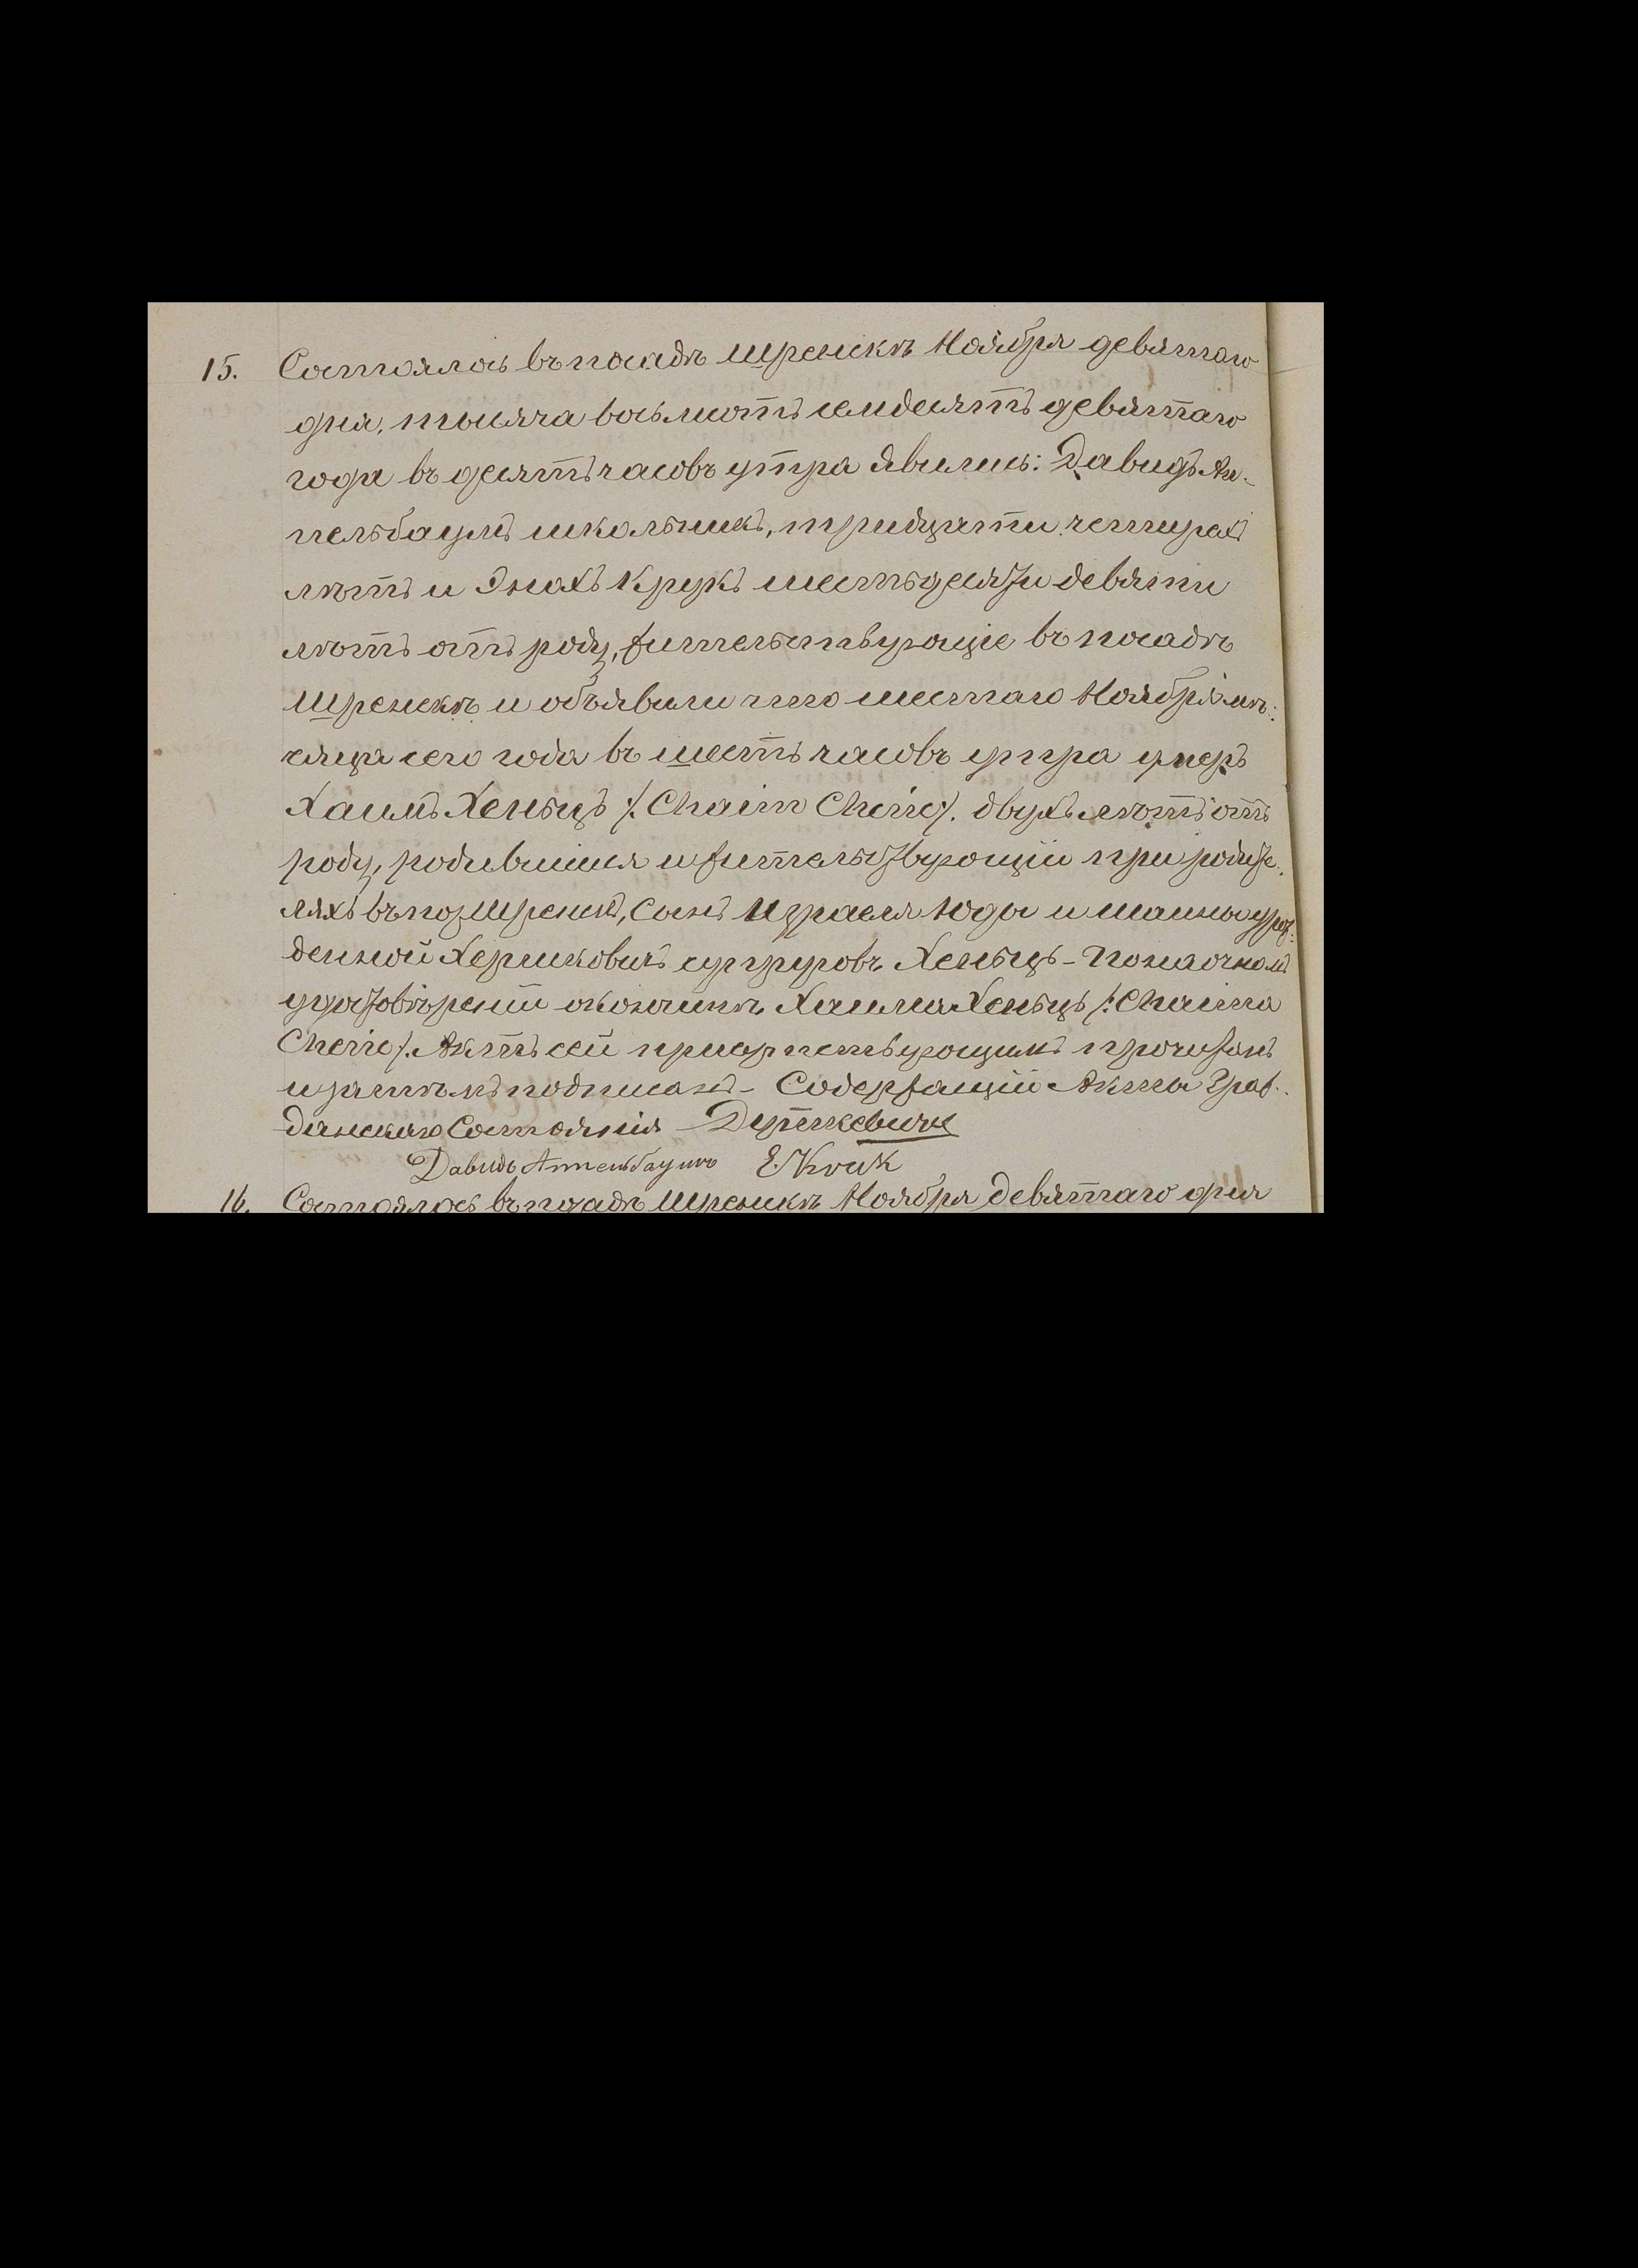 15. Состоялось въ посадѣ Шренскѣ Ноября девятаго
дня, тысяча восьмсотъ семдесятъ девятаго
года въ десять часовъ утра явились: Давидъ Ап-
пельбаумъ школьникъ, тридцати четырехъ
лѣтъ и Энохъ Крукъ шестьдесяти девяти
лѣтъ отъ роду, жительствующіе въ посадѣ
Шренскѣ и объявили что шестаго Ноября мѣ-
сяца сего года въ шесть часовъ утра умеръ
Хаимъ Хеньцъ /: Chaim Cheńc /: двухъ лѣтъ отъ
роду, родившійся и жительствующій при родите-
ляхъ въ пос. Шренскѣ, сынъ Израеля Юды и урож-
денной Хершковичъ супруговъ Хеньцъ - По наочномъ
удостовѣреніи о кончинѣ Хаима Хеньцъ /: Chaima
Cheńc /: Актъ сей присутствующимъ прочитанъ
и затѣмъ подписанъ - Содержащій Акты Граж-
данскаго Состоянія
Давидъ Аппельбаумъ E. Kruk
16. Состоялось въ посадѣ Шренскѣ Ноября девятаго дня